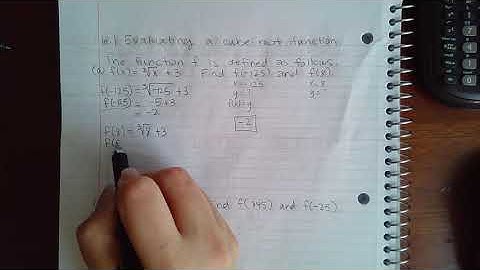 6.1 Evaluating a cube root function
The function f is defined as follows.
(a) f(x) = ∛x + 3. Find f(-125) and f(8).
f(-125) = ∛-125 + 3
x = -125
x = 8
f(-125) = -5 + 3
y = ?
y = ?
= -2
-2
f(8) = ∛8 + 3
f(8
find f(345) and f(-25)